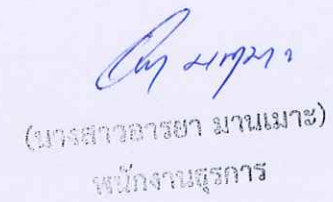 (นางสาวอารยา มานเมาะ)
พนักงานธุรการ